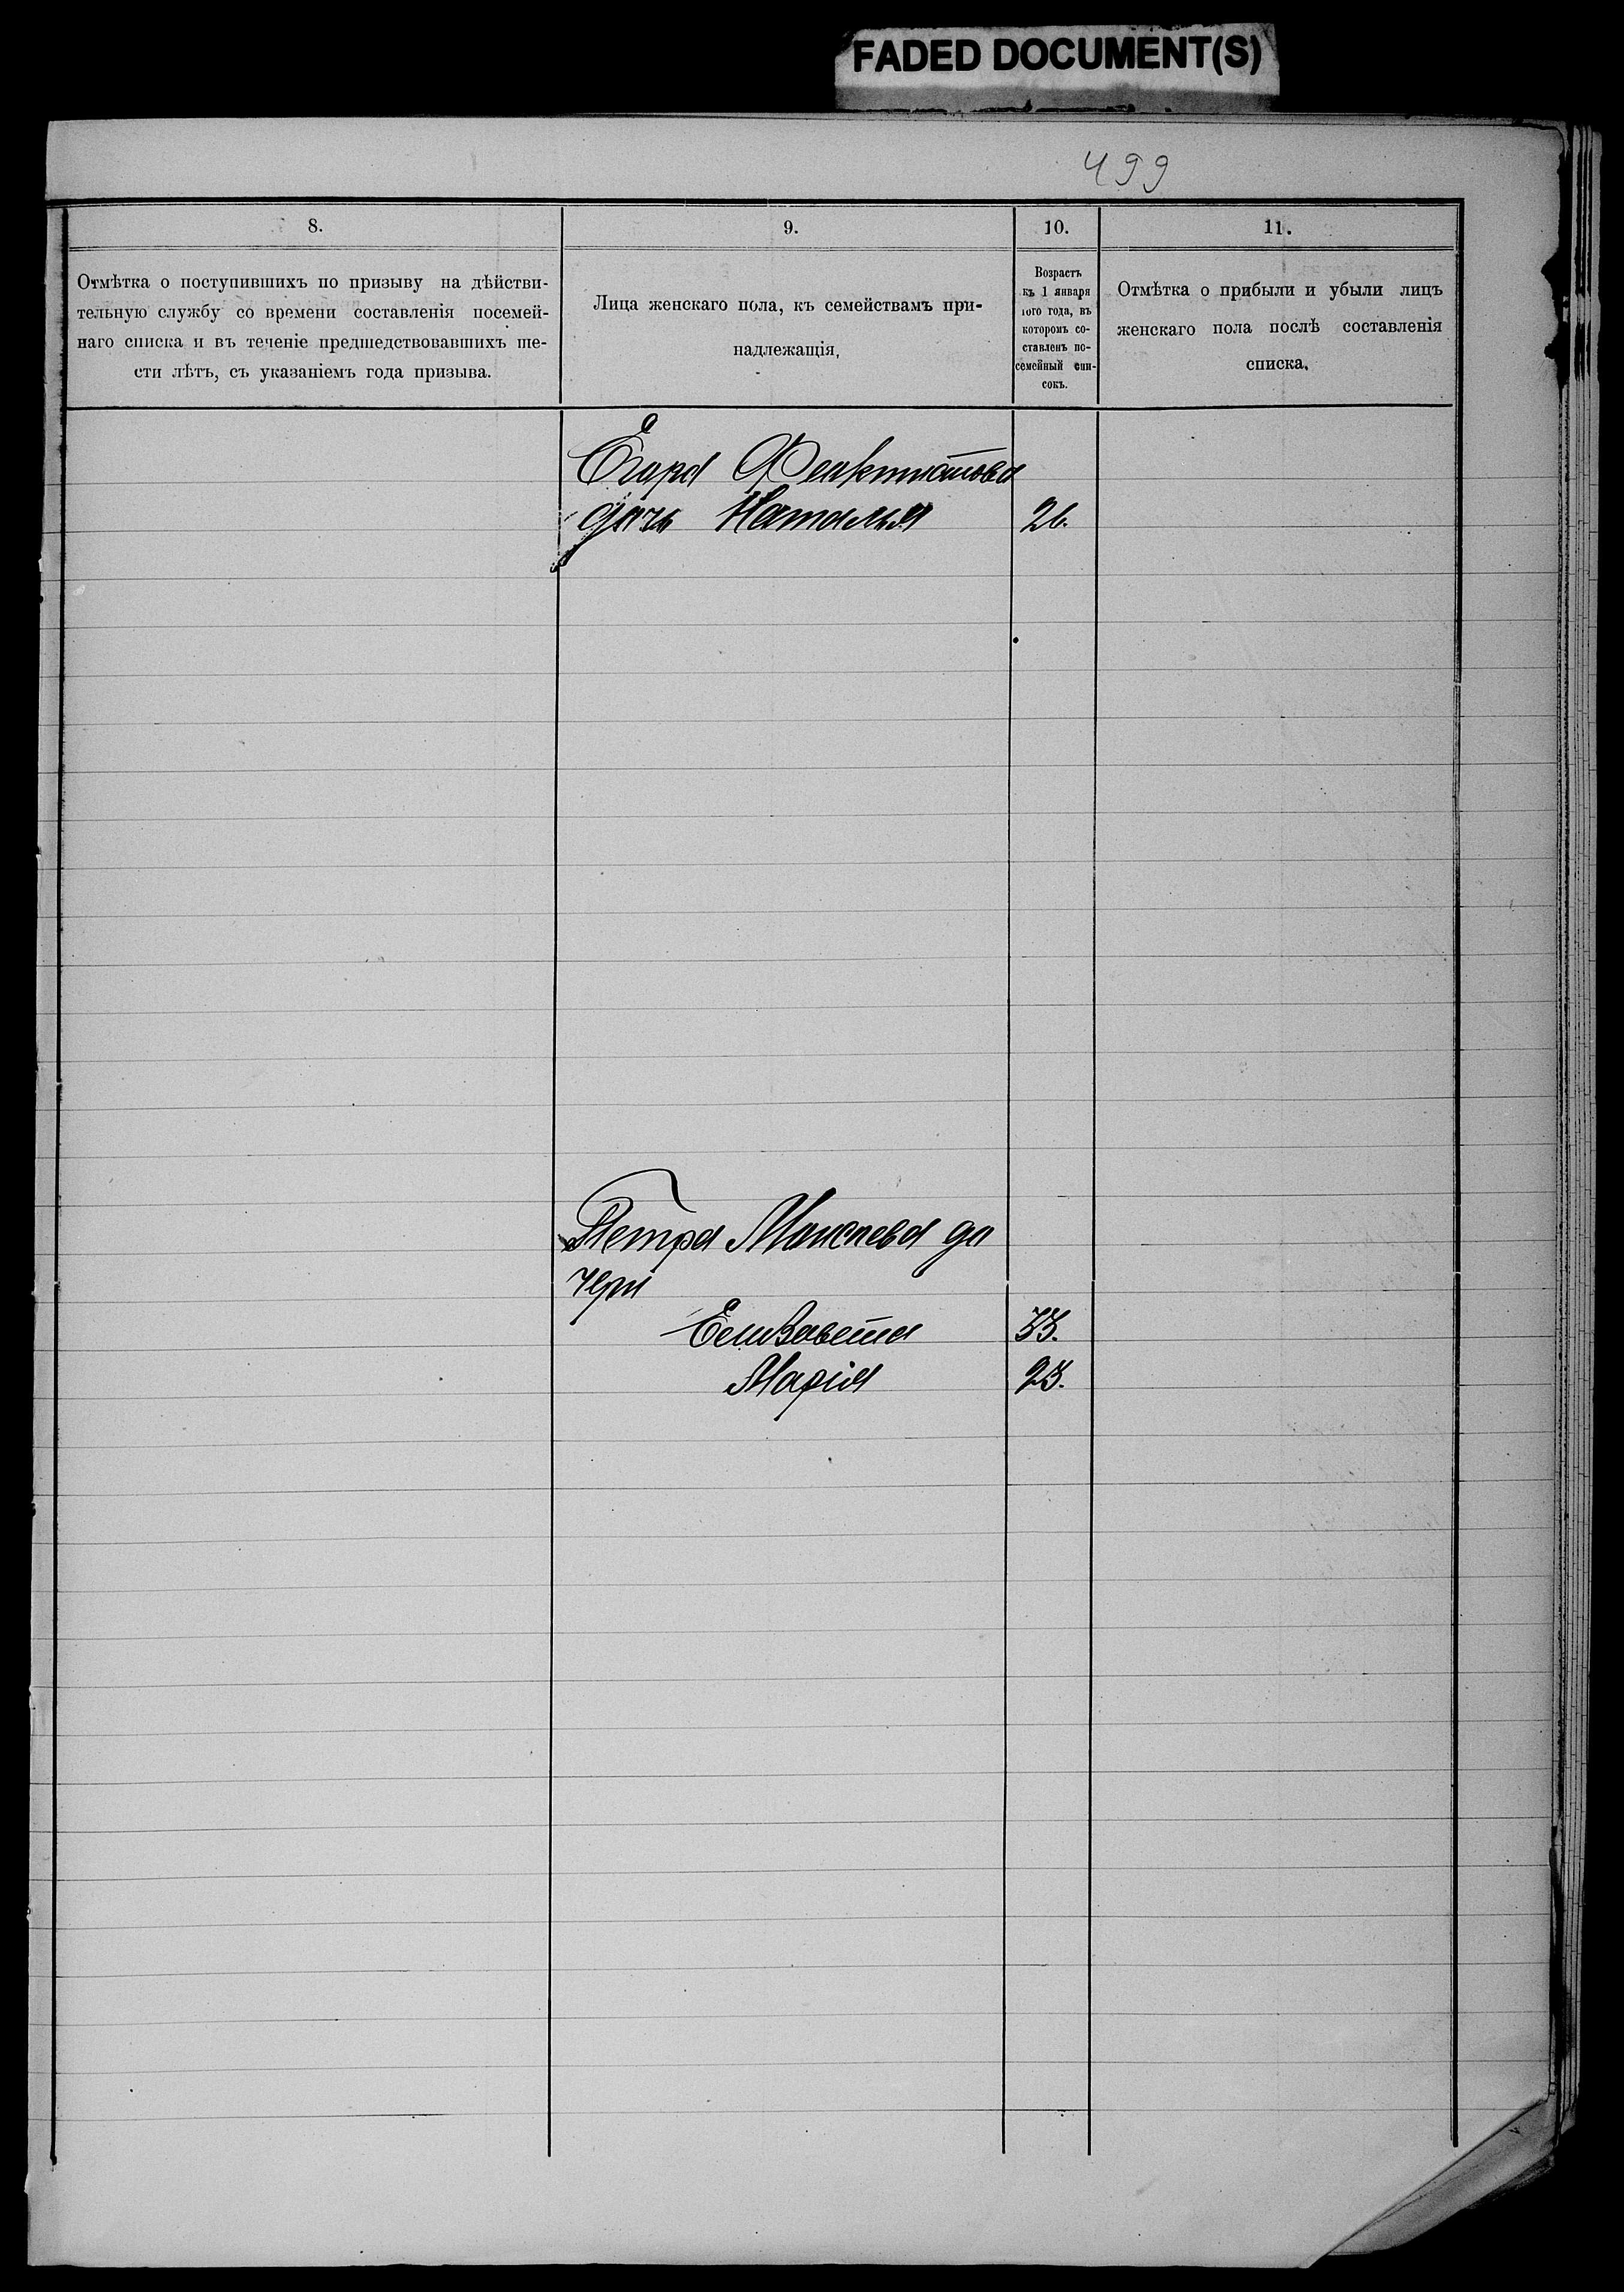 FADED DOCUMENT(S)
499
8.
9.
10.
11.
Отмѣтка о поступившихъ по призыву на дѣйстви-
тельную службу со времени составленія посемей-
наго списка и въ теченіе предшедствовавшихъ ше-
сти лѣтъ, съ указаніемъ года призыва.
Лица женскаго пола, къ семействамъ при-
надлежащія,
Возрастъ
къ 1 января
того года, въ
которомъ со-
ставленъ по-
семейный спи-
сокъ.
Отмѣтка о прибыли и убыли лицъ
женскаго пола послѣ составленія
списка.
Егора Феактистова
дочь Наталья 26.
Петра Моисеева до
чери
Елизавета 33.
Марія 23.